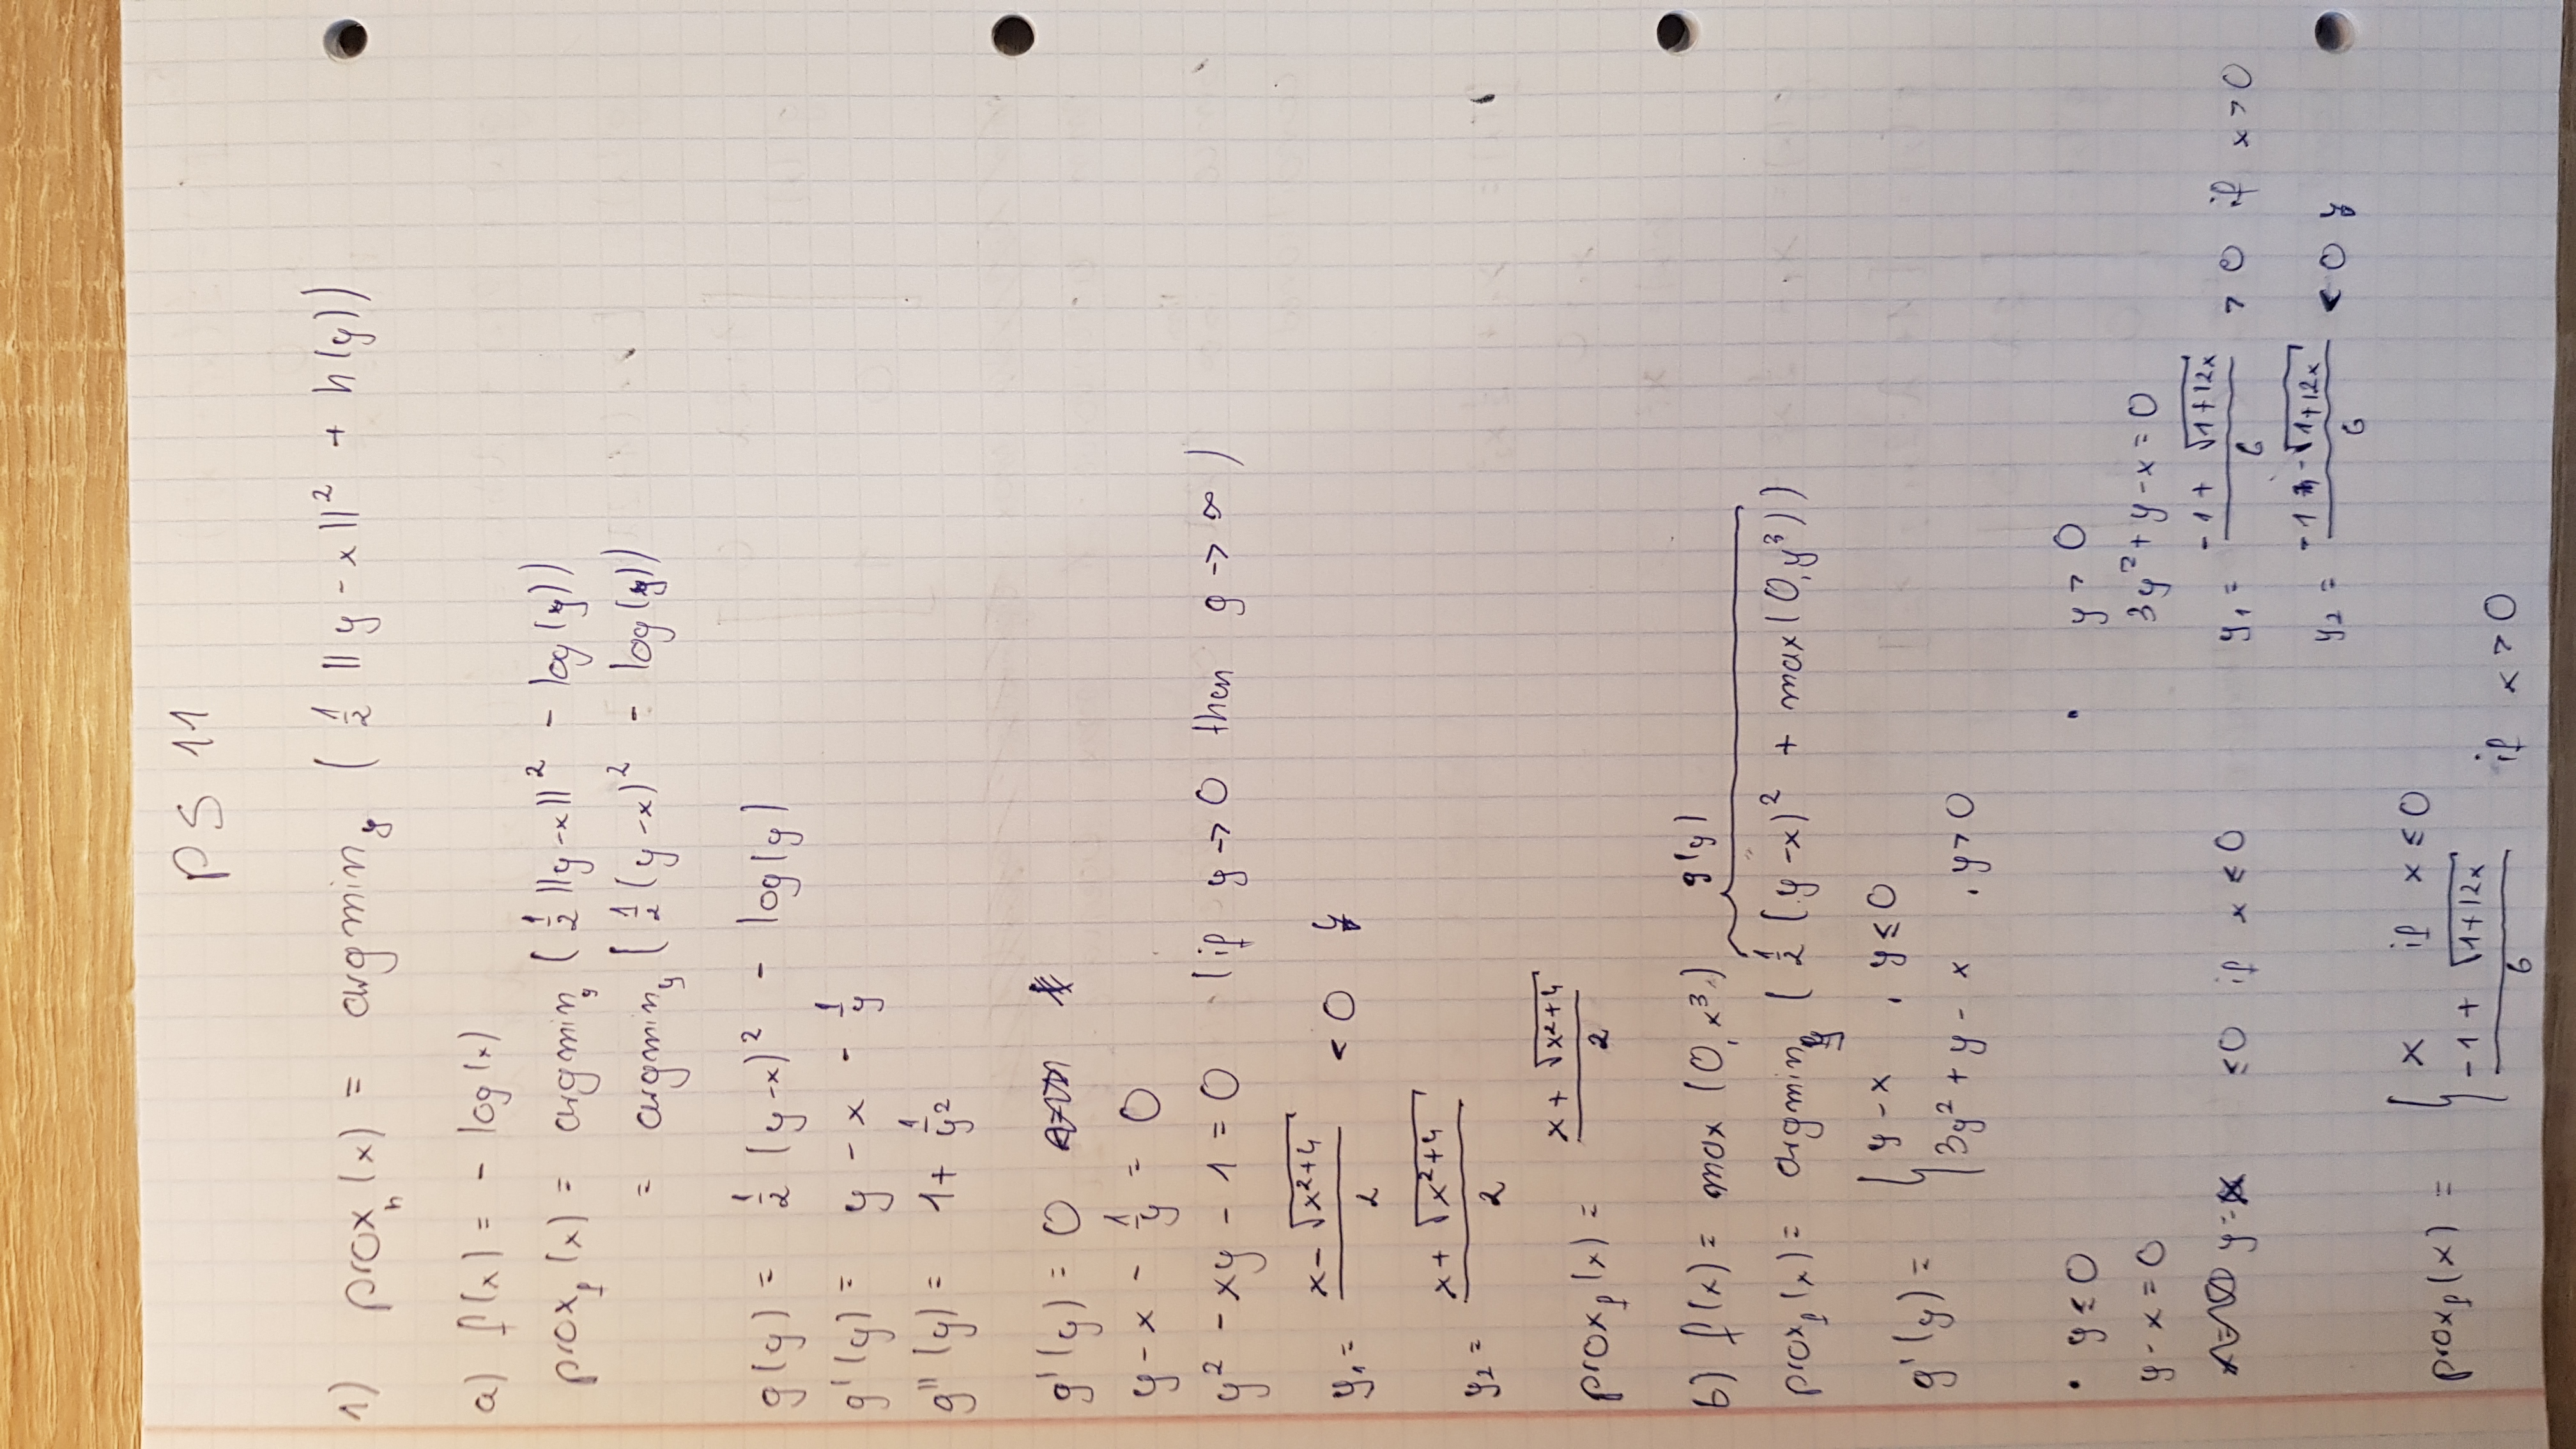 PS 11
1) prox_h(x) = argmin_y ( 1/2 ||y-x||² + h(y))
a) f(x) = - log(x)
prox_f(x) = argmin_y ( 1/2 ||y-x||² - log(y))
= argmin_y ( 1/2 (y-x)² - log(y))
g(y) = 1/2 (y-x)² - log(y)
g'(y) = y - x - 1/y
g''(y) = 1+ 1/y²
g'(y) = 0
y-x - 1/y = 0
y² - xy - 1 = 0 (if y → 0 then g → ∞)
y₁ = (x - √(x²+4))/2 < 0 ↯
y₂ = (x + √(x²+4))/2
prox_f(x) = (x + √(x²+4))/2
b) f(x) = max (0, x³) g(y)
prox_f(x) = argmin_y ( 1/2 (y-x)² + max(0,y³))
g'(y) = { y-x , y ≤ 0
3y² + y - x , y > 0
• y ≤ 0
y-x = 0
y = x ≤ 0 if x ≤ 0
• y > 0
3y² + y - x = 0
y₁ = (-1 + √(1+12x))/6 > 0 if x > 0
y₂ = (-1 - √(1+12x))/6 < 0 ↯
prox_f(x) = { x if x ≤ 0
(-1 + √(1+12x))/6 if x > 0